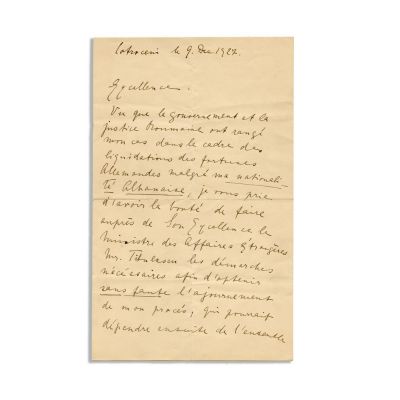 Cotroceni le 9. Dec 1927.
Excellence.
Vu que le gouvernement et la
justice Roumaine ont rangé
mon cas dans le cadre des
liquidations des fortunes
Allemandes malgré ma nationali-
té Albanaise, je vous prie
d'avoir la bonté de faire
auprès de Son Excellence le
Ministre des Affaires Etrangères
Mr. Titulescu les démarches
nécessaires afin d'obtenir
sans faute l'ajournement
de mon procés, qui pourrait
dépendre ensuite de l'ensemble